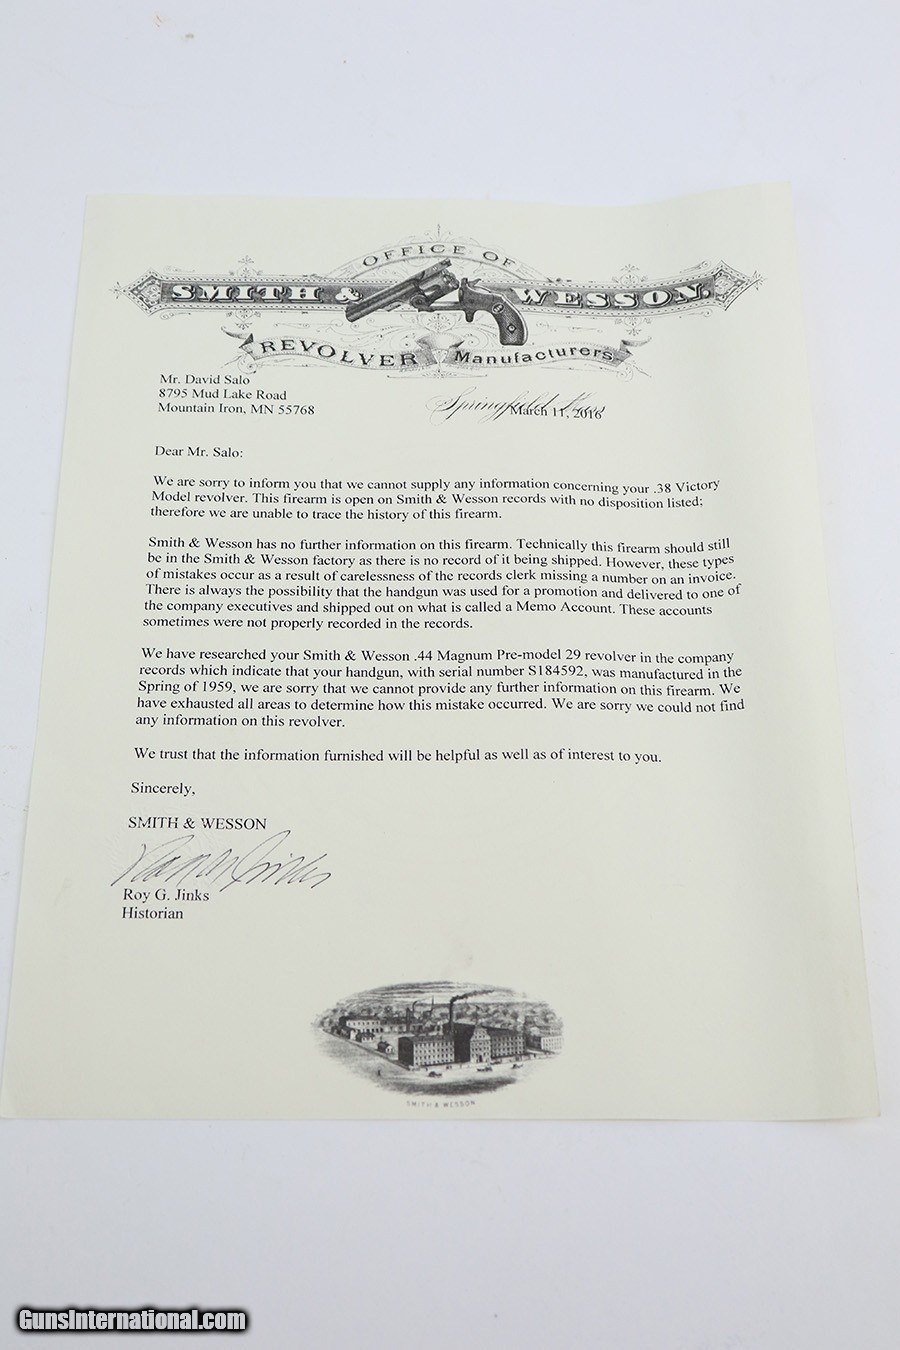 OFFICE OF
SMITH & WESSON.
REVOLVER Manufacturers
Mr. David Salo
8795 Mud Lake Road
Mountain Iron, MN 55768
Springfield Mass
March 11, 2016
Dear Mr. Salo:
We are sorry to inform you that we cannot supply any information concerning your .38 Victory
Model revolver. This firearm is open on Smith & Wesson records with no disposition listed;
therefore we are unable to trace the history of this firearm.
Smith & Wesson has no further information on this firearm. Technically this firearm should still
be in the Smith & Wesson factory as there is no record of it being shipped. However, these types
of mistakes occur as a result of carelessness of the records clerk missing a number on an invoice.
There is always the possibility that the handgun was used for a promotion and delivered to one of
the company executives and shipped out on what is called a Memo Account. These accounts
sometimes were not properly recorded in the records.
We have researched your Smith & Wesson .44 Magnum Pre-model 29 revolver in the company
records which indicate that your handgun, with serial number S184592, was manufactured in the
Spring of 1959, we are sorry that we cannot provide any further information on this firearm. We
have exhausted all areas to determine how this mistake occurred. We are sorry we could not find
any information on this revolver.
We trust that the information furnished will be helpful as well as of interest to you.
Sincerely,
SMITH & WESSON
Roy G. Jinks
Historian
SMITH & WESSON
GunsInternational.com